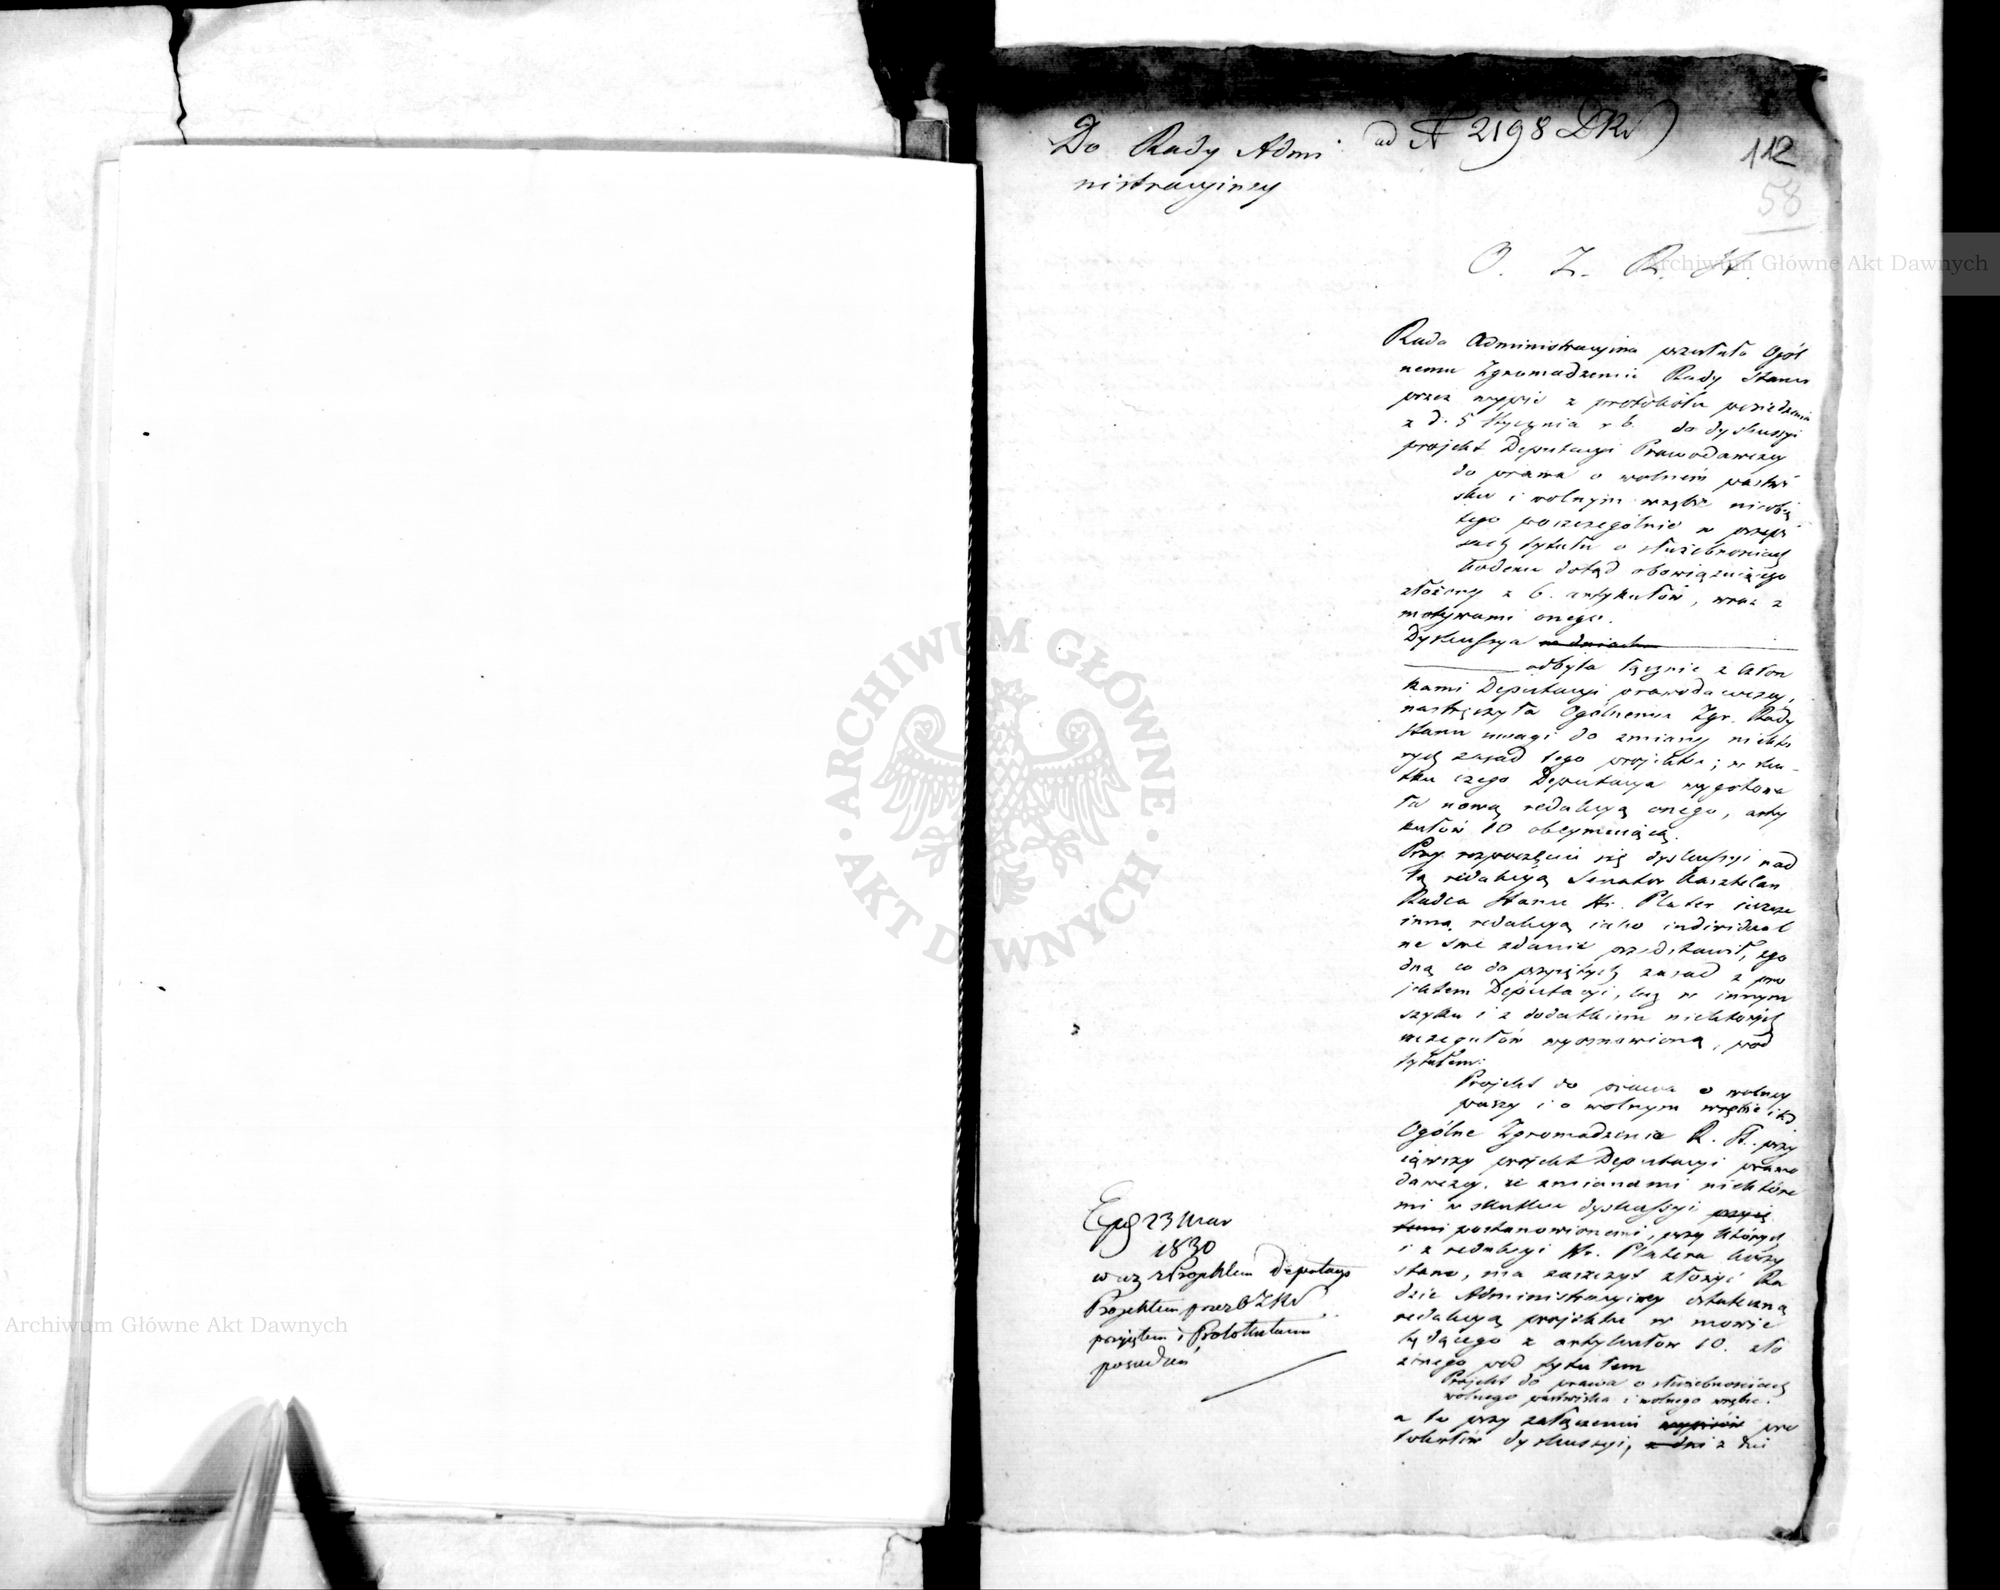 ad N 2198 DRS
Do Rady Admi
nistracyiney
112
58
O. Z. R. St.
Rada Administracyina przesłała Ogól
nemu Zgromadzeniu Rady Stanu
przez wypis z protokółu posiedzenia
z d. 5 Stycznia r b. do dyskussyi
projekt Deputacyi Prawodawczey
do prawa o wolném pastwi
sku i wolnym wrębie nieobię
tego poszczególnie w przepi
sach tytułu o służebnościach
kodexu dotąd obowiązuiącego
złożony z 6. artykułów, wraz z
motywami onego.
Dyskussya
odbyta łącznie z Człon
kami Deputacyi prawodawczey,
nastręczyła Ogólnemu Zgr. Rady
Stanu uwagi do zmiany niektó
rych zasad tego projektu; w sku-
tku czego Deputacya wygotowa
ła nową redakcyą onego, arty
kułów 10 obeymuiącą.
Przy rozpoczęciu się dyskussyi nad
tą redakcyą Senator Kasztelan
Radca Stanu Hr. Plater ieszcze
inną redakcyą iako individual
ne swe zdanie przedstawił, zgo
dną co do przyiętych zasad z pro
jektem Deputacyi, lecz w innym
szyku i z dodatkiem niektórych
szczegułów wysnowioną, pod
tytułem:
Projekt do prawa o wolney
paszy i o wolnym wrębie
Ogólne Zgromadzenie R. St. przy
iąwszy projekt Deputacyi prawo
dawczey, ze zmianami niektóre
mi w skutku dyskussyi przyię
temi postanowionemi, przy których
i z redakcyi Hr. Platera korzy
stano, ma zaszczyt złożyć Ra
dzie Administracyiney ostateczną
redakcyą projektu w mowie
będącego z artykułów 10. zło
żonego pod tytułem
Projekt do prawa o służebnościach
wolnego pastwiska i wolnego wrębu.
a to przy załączeniu wypisów pro
tokułów dyskussyi, z dni
Exp 23 Mar
1830
wraz z Projektem Deputacyi
Projektem przez OZRS
przyjętem i Protokułami
posiedzeń
Archiwum Główne Akt Dawnych
ARCHIWUM GŁÓWNE · AKT DAWNYCH ·
Archiwum Główne Akt Dawnych